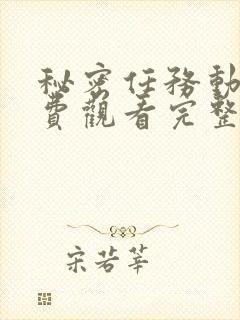 秘密任務動
費觀看完整
宋若莘